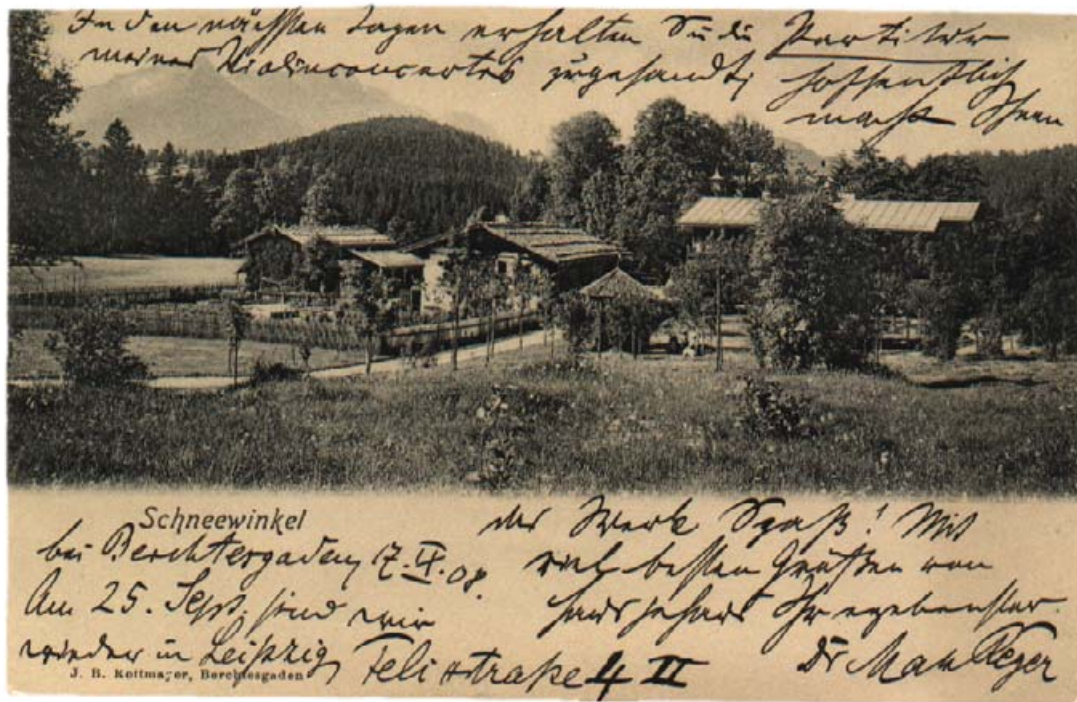 In den nächsten Tagen erhalten Sie die Partitur
meines Violinconcertes zugesandt; hoffentlich
macht Ihnen
Schneewinkel
bei Berchtesgaden 7. IX. 08.
Am 25. Sept. sind wir
wieder in Leipzig, Felixstraße 4 II
das Werk Spaß! Mit
viel besten Grüßen von
Haus zu Haus Ihr ergebenster
Dr Max Reger
J. B. Rottmayer, Berchtesgaden